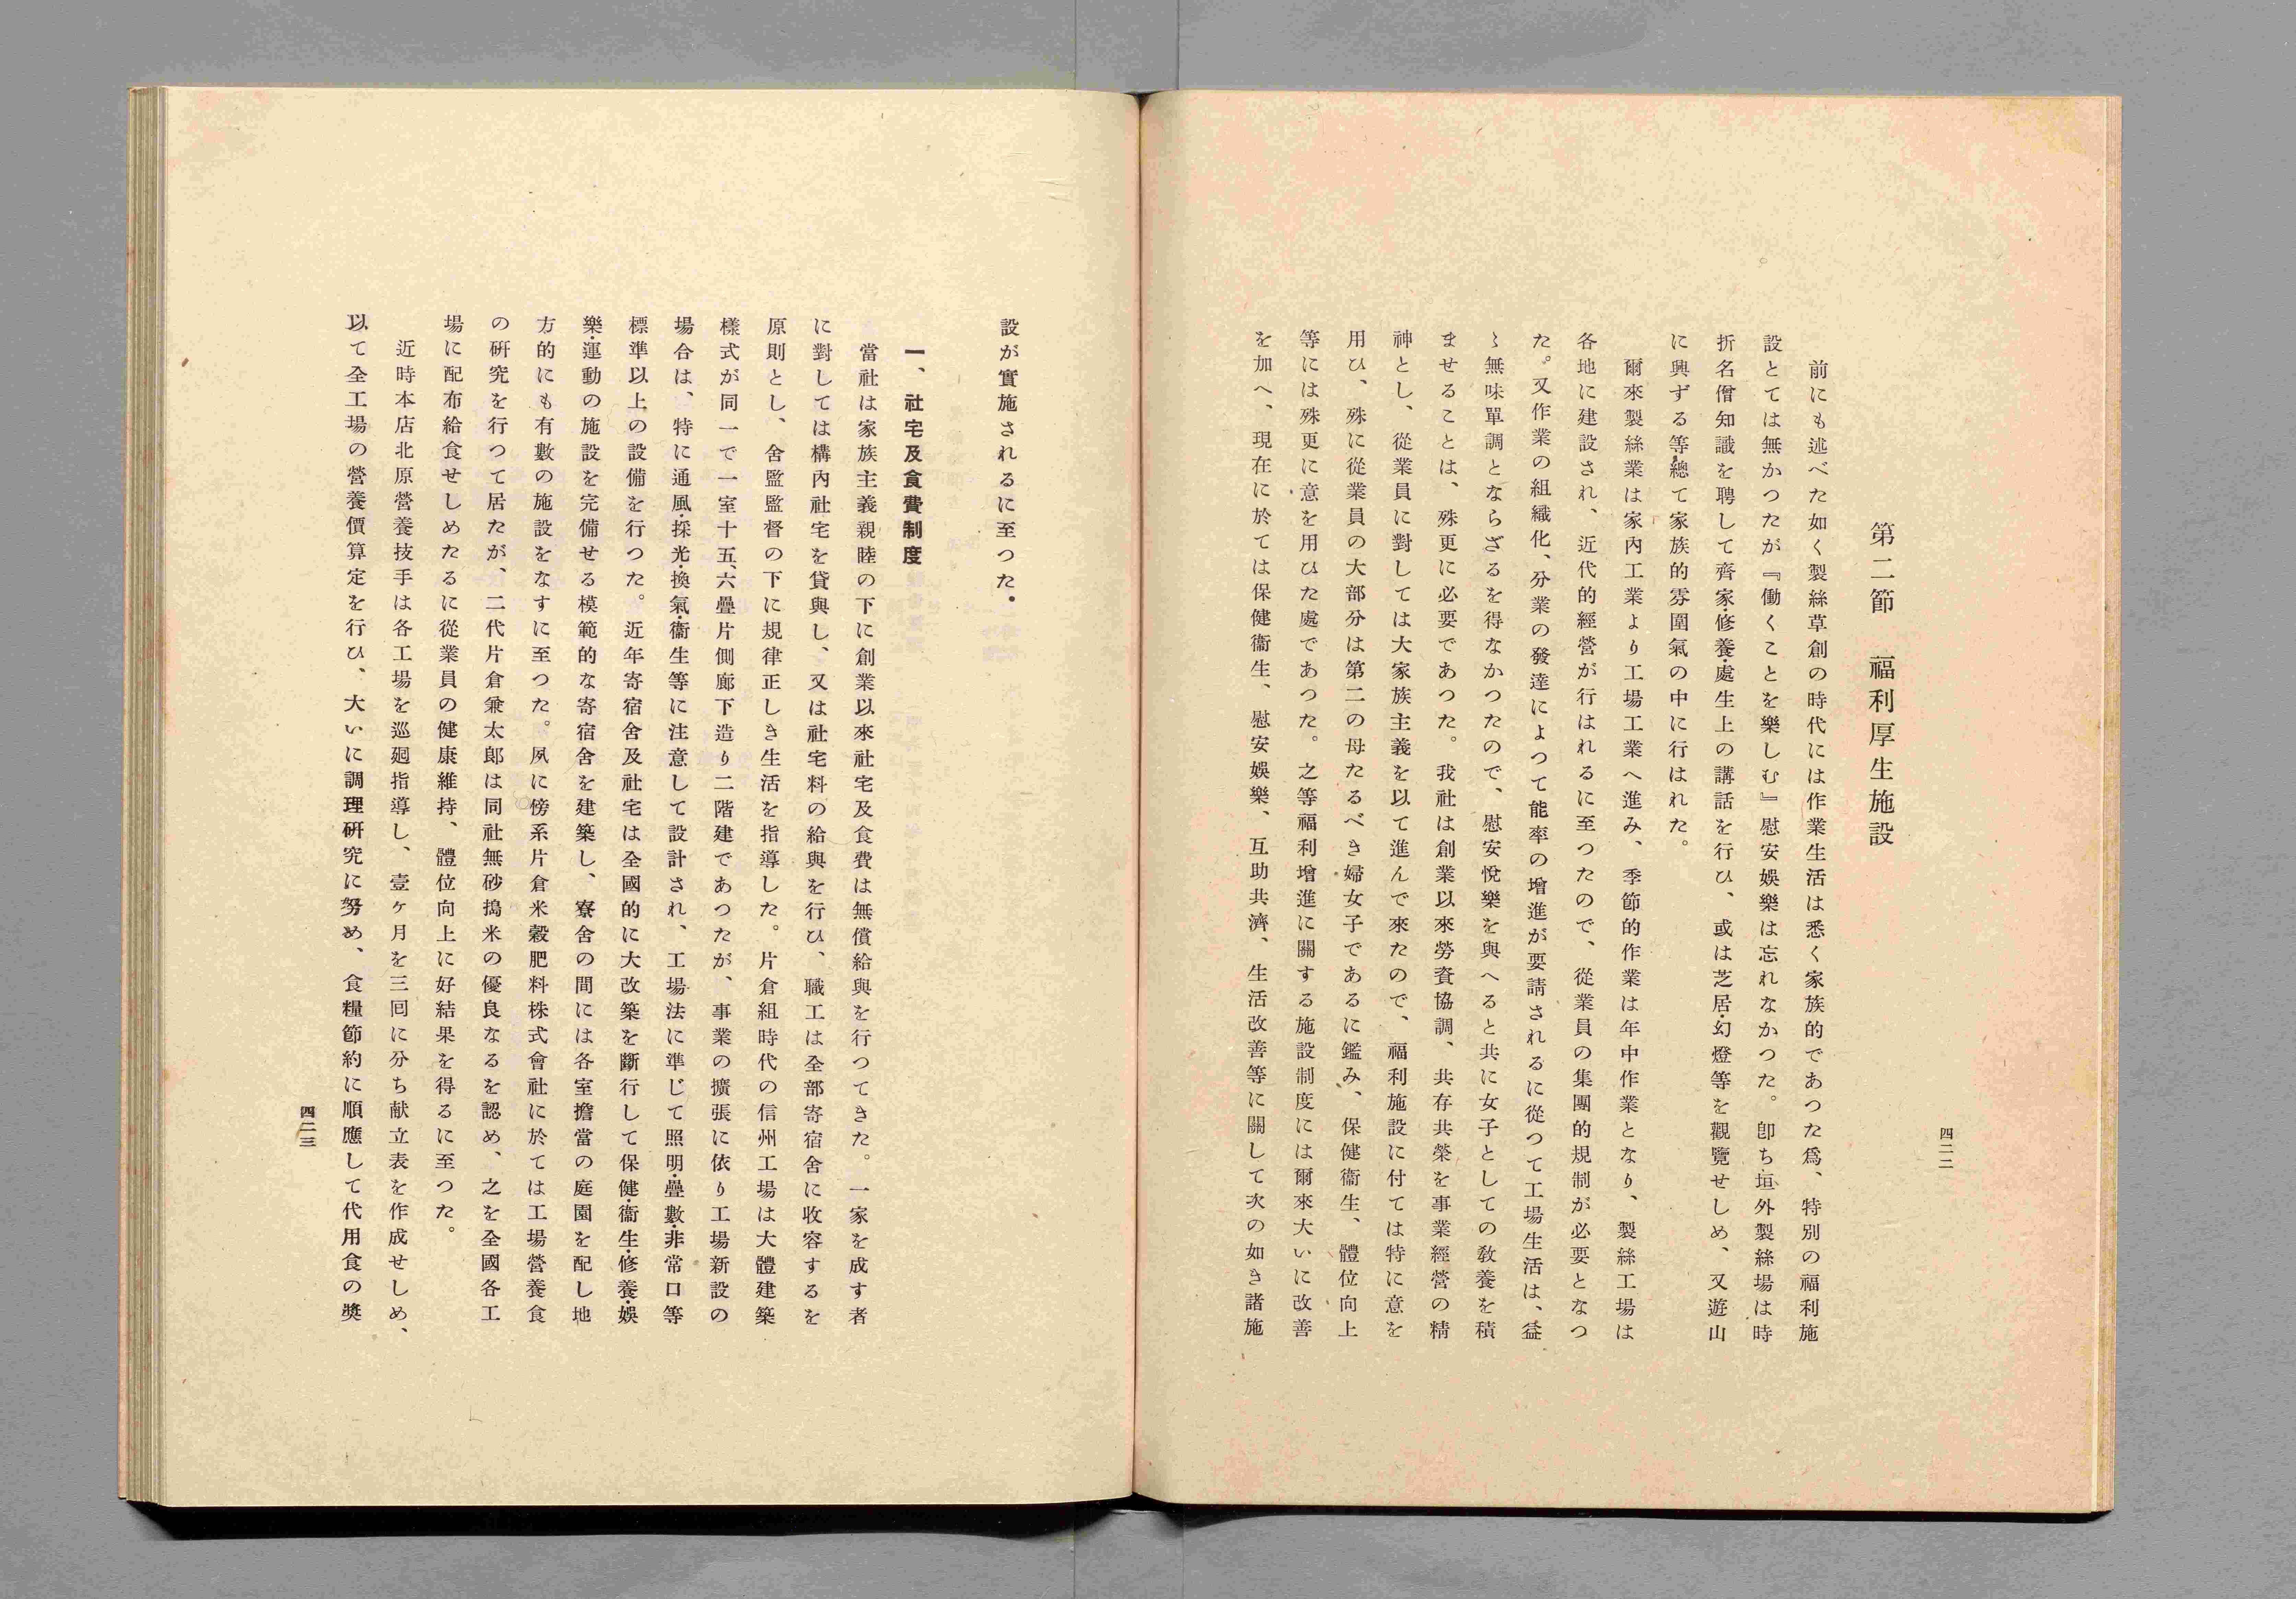 四二二
第二節　福利厚生施設
前にも述べた如く製絲草創の時代には作業生活は悉く家族的であつた爲、特別の福利施
設とては無かつたが『働くことを樂しむ』慰安娯樂は忘れなかつた。卽ち垣外製絲場は時
折名僧知識を聘して齊家・修養・處生上の講話を行ひ、或は芝居・幻燈等を觀覽せしめ、又遊山
に興ずる等總て家族的雰圍氣の中に行はれた。
爾來製絲業は家內工業より工場工業へ進み、季節的作業は年中作業となり、製絲工場は
各地に建設され、近代的經營が行はれるに至つたので、從業員の集團的規制が必要となつ
た。又作業の組織化、分業の發達によつて能率の增進が要請されるに從つて工場生活は、益
〻無味單調とならざるを得なかつたので、慰安悅樂を與へると共に女子としての敎養を積
ませることは、殊更に必要であつた。我社は創業以來勞資協調、共存共榮を事業經營の精
神とし、從業員に對しては大家族主義を以て進んで來たので、福利施設に付ては特に意を
用ひ、殊に從業員の大部分は第二の母たるべき婦女子であるに鑑み、保健衞生、體位向上
等には殊更に意を用ひた處であつた。之等福利增進に關する施設制度には爾來大いに改善
を加へ、現在に於ては保健衞生、慰安娯樂、互助共濟、生活改善等に關して次の如き諸施
設が實施されるに至つた。
一、社宅及食費制度
當社は家族主義親睦の下に創業以來社宅及食費は無償給與を行つてきた。一家を成す者
に對しては構內社宅を貸與し、又は社宅料の給與を行ひ、職工は全部寄宿舍に收容するを
原則とし、舍監監督の下に規律正しき生活を指導した。片倉組時代の信州工場は大體建築
樣式が同一で一室十五、六疊片側廊下造り二階建であつたが、事業の擴張に依り工場新設の
場合は、特に通風・採光・換氣・衞生等に注意して設計され、工場法に準じて照明・疊數・非常口等
標準以上の設備を行つた。近年寄宿舍及社宅は全國的に大改築を斷行して保健・衞生・修養・娯
樂・運動の施設を完備せる模範的な寄宿舍を建築し、寮舍の間には各室擔當の庭園を配し地
方的にも有數の施設をなすに至つた。夙に傍系片倉米穀肥料株式會社に於ては工場營養食
の硏究を行つて居たが、二代片倉兼太郞は同社無砂搗米の優良なるを認め、之を全國各工
場に配布給食せしめたるに從業員の健康維持、體位向上に好結果を得るに至つた。
近時本店北原營養技手は各工場を巡廻指導し、壹ヶ月を三回に分ち献立表を作成せしめ、
以て全工場の營養價算定を行ひ、大いに調理硏究に努め、食糧節約に順應して代用食の獎
四二三